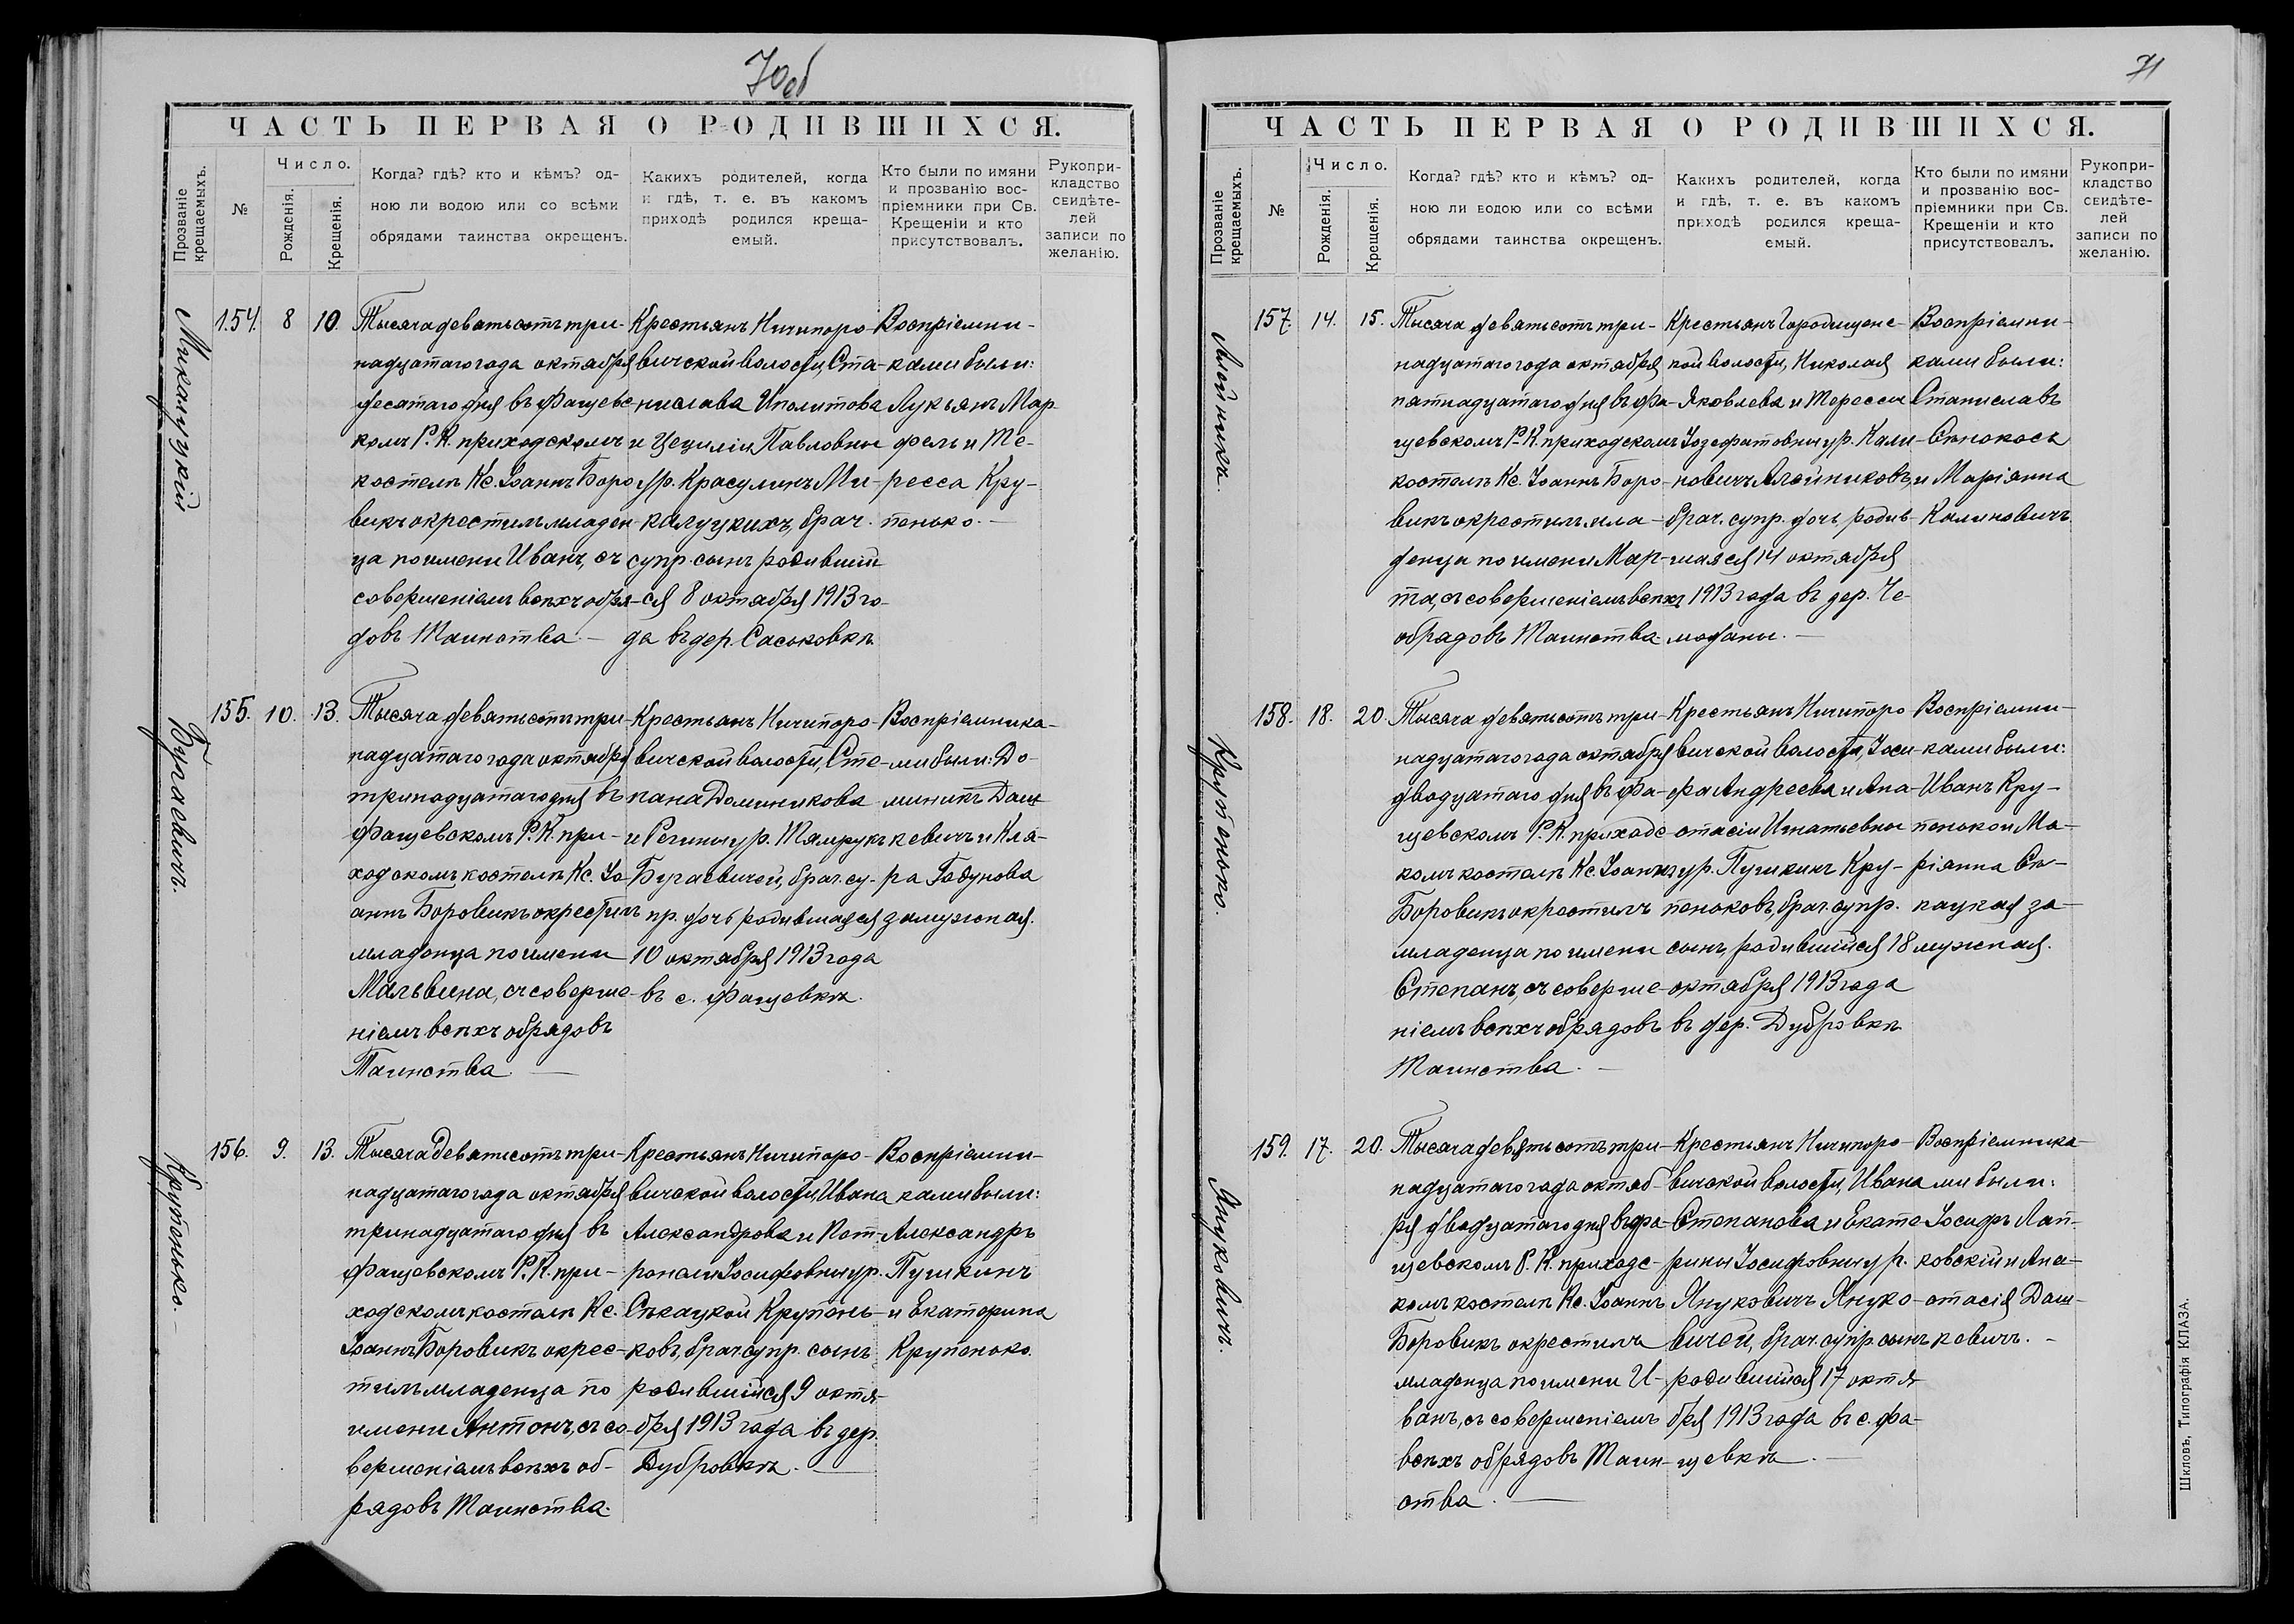 70об
ЧАСТЬ ПЕРВАЯ О РОДИВШИХСЯ.
Прозваніе крещаемыхъ.
№
Число.
Рожденія.
Крещенія.
Когда? гдѣ? кто и кѣмъ? од-
ною ли водою или со всѣми
обрядами таинства окрещенъ.
Какихъ родителей, когда
и гдѣ, т. е. въ какомъ
приходѣ родился креща-
емый.
Кто были по имяни
и прозванію вос-
пріемники при Св.
Крещеніи и кто
присутствовалъ.
Рукопри-
кладство
свидѣте-
лей
записи по
желанію.
Микалуцкій
154. 8 10.
Тысяча девятьсотъ три-
надцатаго года октября
десятаго дня въ Фащевс
комъ Р. К. приходскомъ
костелѣ Кс. Іоаннъ Боро
викъ окрестилъ младен
ца по имени Иванъ, съ
совершеніемъ всѣхъ обря-
довъ Таинства. —
Крестьянъ Ничипоро-
вичской волости, Ста-
нислава Иполитова
и Цециліи Павловны
ур. Красулинъ Ми-
калуцкихъ, брач.
супр. сынъ родивший
ся 8 октября 1913 го-
да въ дер. Саськовкѣ
Воспріемни-
ками были:
Лукьянъ Мар
фель и Те-
ресса Кру-
пенько. —
Бугаевичъ.
155. 10. 13.
Тысяча девятьсотъ три-
надцатаго года октября
тринадцатаго дня въ
Фащевскомъ Р. К. при-
ходскомъ костелѣ Кс. Іо-
аннъ Боровикъ окрестилъ
младенца по имени
Мальвина, съ соверше-
ніемъ всѣхъ обрядовъ
Таинства. —
Крестьянъ Ничипоро-
вичской волости, Сте-
пана Доминикова
и Регины ур. Тямрукъ
Бугаевичей, брач. су-
пр. дочь родившаяся
10 октября 1913 года
въ с. Фащевкѣ.
Воспріемника-
ми были: До-
миникъ Даш
кевичъ и Кла-
ра Годунова
замужная.
Крупенько.
156. 9. 13.
Тысяча девятьсотъ три-
надцатаго года октября
тринадцатаго дня въ
Фащевскомъ Р. К. при-
ходскомъ костелѣ Кс.
Іоаннъ Боровикъ окрес-
тилъ младенца по
имени Антонъ, съ со
вершеніемъ всѣхъ об-
рядовъ Таинства.
Крестьянъ Ничипоро-
вичской волости, Ивана
Александрова и Пет-
ронели Іосифовны ур.
Сѣкацкой Крупень-
ковъ, брач. супр. сынъ
родившийся 9 октя-
бря 1913 года въ дер.
Дубровкѣ. —
Воспріемни-
ками были:
Александръ
Пушкинъ
и Екатерина
Крупенько.
71
ЧАСТЬ ПЕРВАЯ О РОДИВШИХСЯ.
Прозваніе крещаемыхъ.
№
Число.
Рожденія.
Крещенія.
Когда? гдѣ? кто и кѣмъ? од-
ною ли водою или со всѣми
обрядами таинства окрещенъ.
Какихъ родителей, когда
и гдѣ, т. е. въ какомъ
приходѣ родился креща-
емый.
Кто были по имяни
и прозванію вос-
пріемники при Св.
Крещеніи и кто
присутствовалъ.
Рукопри-
кладство
свидѣте-
лей
записи по
желанію.
157. 14. 15.
Тысяча девятьсотъ три-
надцатаго года октября
пятнадцатаго дня въ Фа-
щевскомъ Р. К. приходскомъ
костелѣ Кс. Іоаннъ Боро-
викъ окрестилъ мла-
денца по имени Мар-
та, съ совершеніемъ всѣхъ
обрядовъ Таинства
Крестьянъ Городищенс-
кой волости, Николая
Яковлева и Терессы
Іозефатовны ур. Кали-
новичъ Алейниковъ,
брач. супр. дочь родив-
шаяся 14 октября
1913 года въ дер. Че-
моданы. —
Воспріемни-
ками были:
Станиславъ
Сѣнокосъ
и Маріянна
Калиновичъ
Крупенько.
158. 18. 20.
Тысяча девятьсотъ три-
надцатаго года октября
двадцатаго дня въ Фа-
щевскомъ Р. К. приходс-
комъ костелѣ Кс. Іоаннъ
Боровикъ окрестилъ
младенца по имени
Степанъ, съ соверше-
ніемъ всѣхъ обрядовъ
Таинства. —
Крестьянъ Ничипоро
вичской волости, Іоси-
фа Андреева и Ана-
стасіи Игнатьевны
ур. Пушкинъ Кру-
пеньковъ, брач. супр.
сынъ, родившійся 18
октября 1913 года
въ дер. Дубровкѣ
Воспріемни-
ками были:
Иванъ Кру-
пенько и Ма-
ріянна Сѣ-
кацкая за-
мужная.
Януковичъ.
159. 17. 20.
Тысяча девятьсотъ три-
надцатаго года октяб-
ря двадцатаго дня въ Фа-
щевскомъ Р. К. приходс-
комъ костелѣ Кс. Іоаннъ
Боровикъ окрестилъ
младенца по имени И-
ванъ, съ совершеніемъ
всѣхъ обрядовъ Таин-
ства. —
Крестьянъ Ничипоро-
вичской волости, Ивана
Степанова и Екате
рины Іосифовны ур.
Януковичъ Януко-
вичей, брач. супр. сынъ
родившийся 17 октя
бря 1913 года въ с. Фа-
щевкѣ. —
Воспріемника-
ми были:
Іосифъ Лап-
ковскій и Ана-
стасія Даш-
кевичъ. —
Шкловъ, Типографія КЛАЗА.